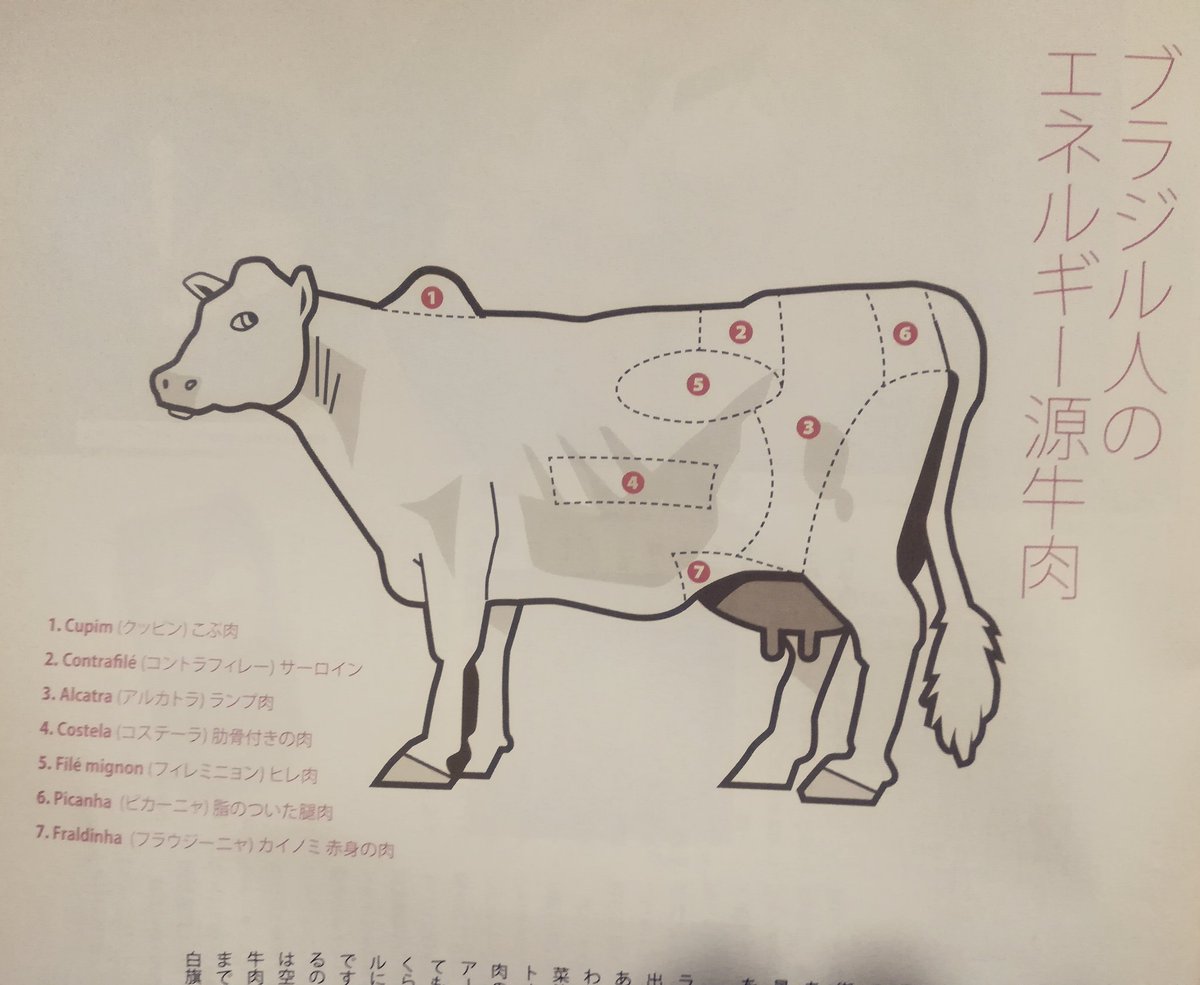 ブラジル人の
エネルギー源牛肉
1
2
6
5
3
4
7
1. Cupim (クッピン) こぶ肉
2. Contrafilé (コントラフィレー) サーロイン
3. Alcatra (アルカトラ) ランプ肉
4. Costela (コステーラ) 肋骨付きの肉
5. Filé mignon (フィレミニョン) ヒレ肉
6. Picanha (ピカーニャ) 脂のついた腿肉
7. Fraldinha (フラウジーニャ) カイノミ 赤身の肉
ラ
出
あ
わ
菜
ト
肉の
アー
ても
くら
ルに
です
るの
は空
牛肉
まで
白旗